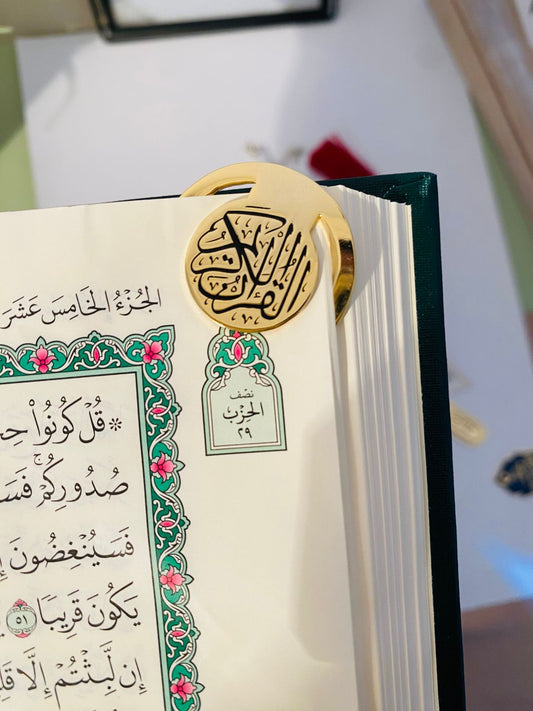 القرآن الكريم
الجُزْءُ الخَامِسَ عَشَرَ
نصف
الحِزْب
٢٩
* قُلْ كُونُوا۟
صُدُورِكُمْ ۚ
فَسَيُنْغِضُونَ
يَكُونَ قَرِيبًا ٥١
إِن لَّبِثْتُمْ إِلَّا